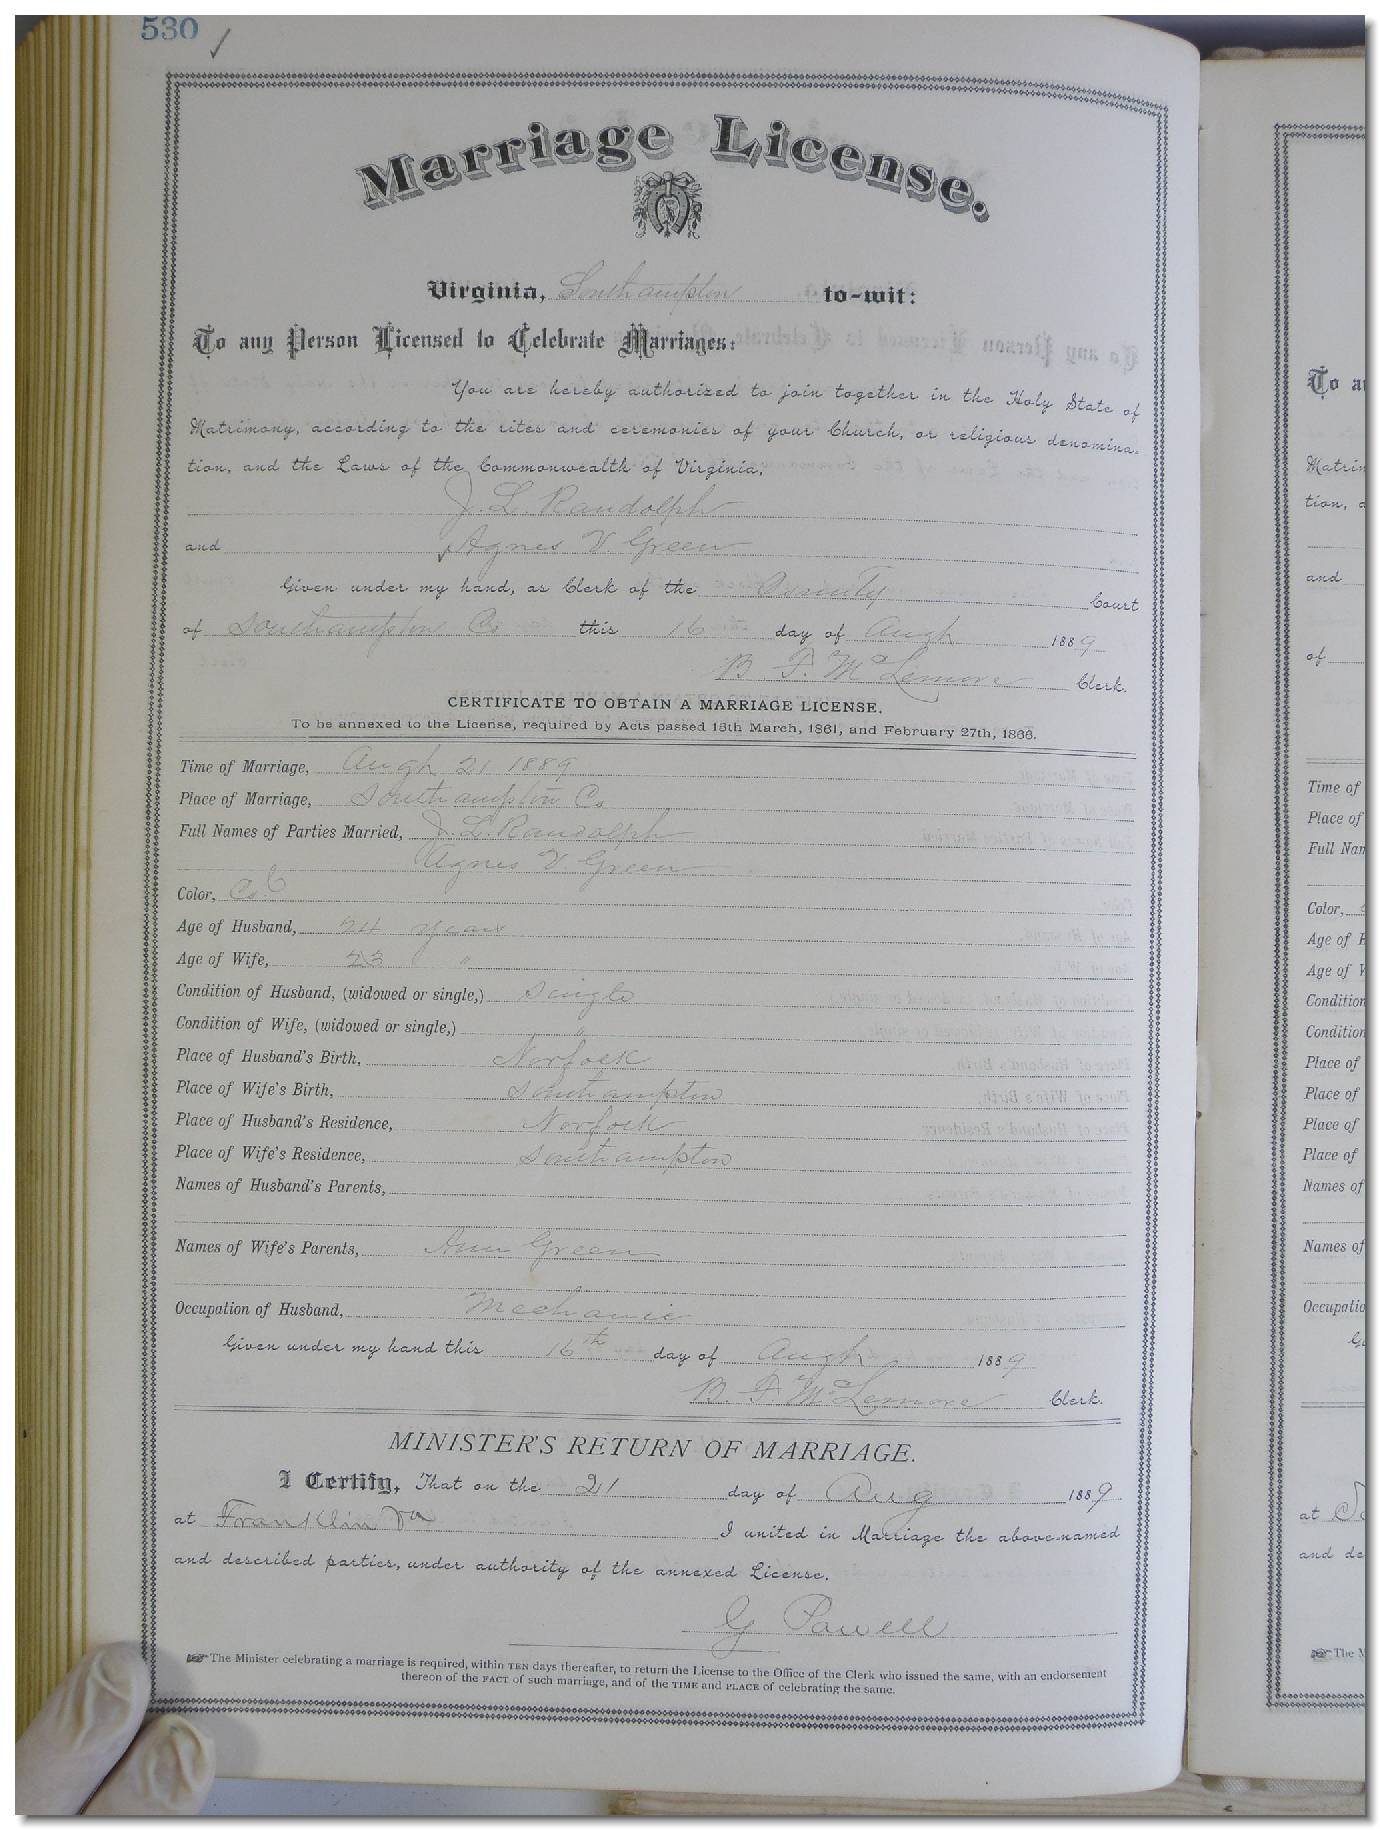 530
Marriage License.
Virginia, Southampton to-wit:
To any Person Licensed to Celebrate Marriages:
You are hereby authorized to join together in the Holy State of
Matrimony, according to the rites and ceremonies of your Church, or religious denomina-
tion, and the Laws of the Commonwealth of Virginia,
J. L. Randolph
and Agnes V. Green
Given under my hand, as Clerk of the County Court
of Southampton Co this 16 day of Augh 1889
B. F. McLemore Clerk.
CERTIFICATE TO OBTAIN A MARRIAGE LICENSE.
To be annexed to the License, required by Acts passed 15th March, 1861, and February 27th, 1866.
Time of Marriage, Augh 21 1889
Place of Marriage, Southampton Co
Full Names of Parties Married, J. L. Randolph
Agnes V Green
Color, Col
Age of Husband, 24 years
Age of Wife, 23 "
Condition of Husband, (widowed or single,) Single
Condition of Wife, (widowed or single,) "
Place of Husband's Birth, Norfolk
Place of Wife's Birth, Southampton
Place of Husband's Residence, Norfolk
Place of Wife's Residence, Southampton
Names of Husband's Parents,
Names of Wife's Parents, Ann Green
Occupation of Husband, Mechanic
Given under my hand this 16th day of Augh 1889
B. F. McLemore Clerk.
MINISTER'S RETURN OF MARRIAGE.
I Certify, That on the 21 day of Aug 1889
at Franklin Va I united in Marriage the above-named
and described parties, under authority of the annexed License.
G Powell
☞ The Minister celebrating a marriage is required, within TEN days thereafter, to return the License to the Office of the Clerk who issued the same, with an endorsement
thereon of the FACT of such marriage, and of the TIME and PLACE of celebrating the same.
To a
Matrim
tion, a
and
of
Time of
Place of
Full Nam
Color,
Age of H
Age of W
Condition
Condition
Place of
Place of
Place of
Place of
Names of
Names of
Occupatio
G
at
and de
☞ The M